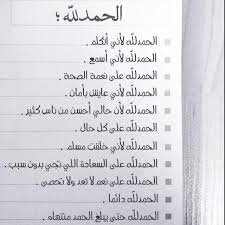 الحمدلله ؛
الحمدلله لأني أتكلم .
الحمدلله لأني أسمع .
الحمدلله على نعمة الصحة .
الحمدلله لأني عايش بأمان .
الحمدلله لأن حالي أحسن من ناس كثير .
الحمدلله على كل حال .
الحمدلله على السعادة اللي تجي بدون سبب .
الحمدلله لأني خلقت مسلم .
الحمدلله على نعم لا تعد ولا تحصى .
الحمدلله دائما .
الحمدلله حتى يبلغ الحمد منتهاه .